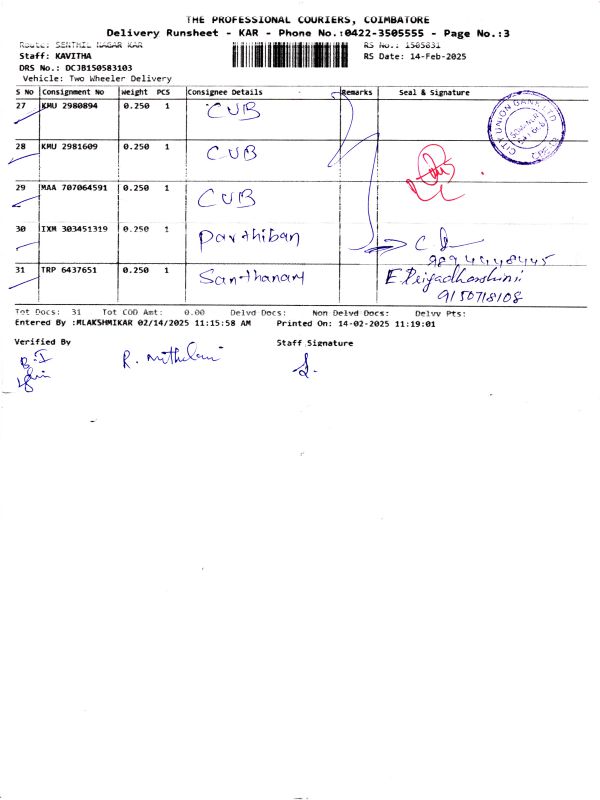 THE PROFESSIONAL COURIERS, COIMBATORE
Delivery Runsheet - KAR - Phone No.:0422-3505555 - Page No.:3
Route: SENTHIL NAGAR KAR RS No.: 1505831
Staff: KAVITHA RS Date: 14-Feb-2025
DRS No.: DCJB150583103
Vehicle: Two Wheeler Delivery
S No Consignment No Weight PCS Consignee Details Remarks Seal & Signature
27 KMU 2980894 0.250 1 CUB
CITY UNION BANK LTD
28 KMU 2981609 0.250 1 CUB
29 MAA 707064591 0.250 1 CUB
30 IXM 303451319 0.250 1 Parthiban
31 TRP 6437651 0.250 1 Santhanam E. Priyadharshini
9150718108
Tot Docs: 31 Tot COD Amt: 0.00 Delvd Docs: Non Delvd Docs: Delvv Pts:
Entered By :MLAKSHMIKAR 02/14/2025 11:15:58 AM Printed On: 14-02-2025 11:19:01
Verified By Staff Signature